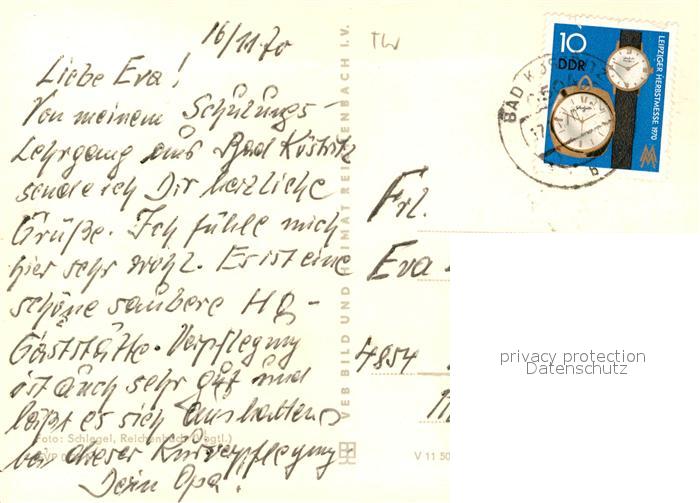 16/11.70
Liebe Eva!
Von meinem Schülungs-
Lehrgang aus Bad Köstritz
sende ich Dir herzliche
Grüße. Ich fühle mich
hier sehr wohl. Es ist eine
schöne saubere HO-
Gaststätte. Verpflegung
ist auch sehr gut und
läßt es sich aushalten
bei dieser Kurverpflegung
Dein Opa.
Foto: Schlegel, Reichenbach (Vogtl.)
VEB BILD UND HEIMAT REICHENBACH I. V.
V 11 50
TW
10
DDR
LEIPZIGER HERBSTMESSE 1970
BAD KÖSTRITZ
17
b
Frl.
Eva
4854
privacy protection
Datenschutz